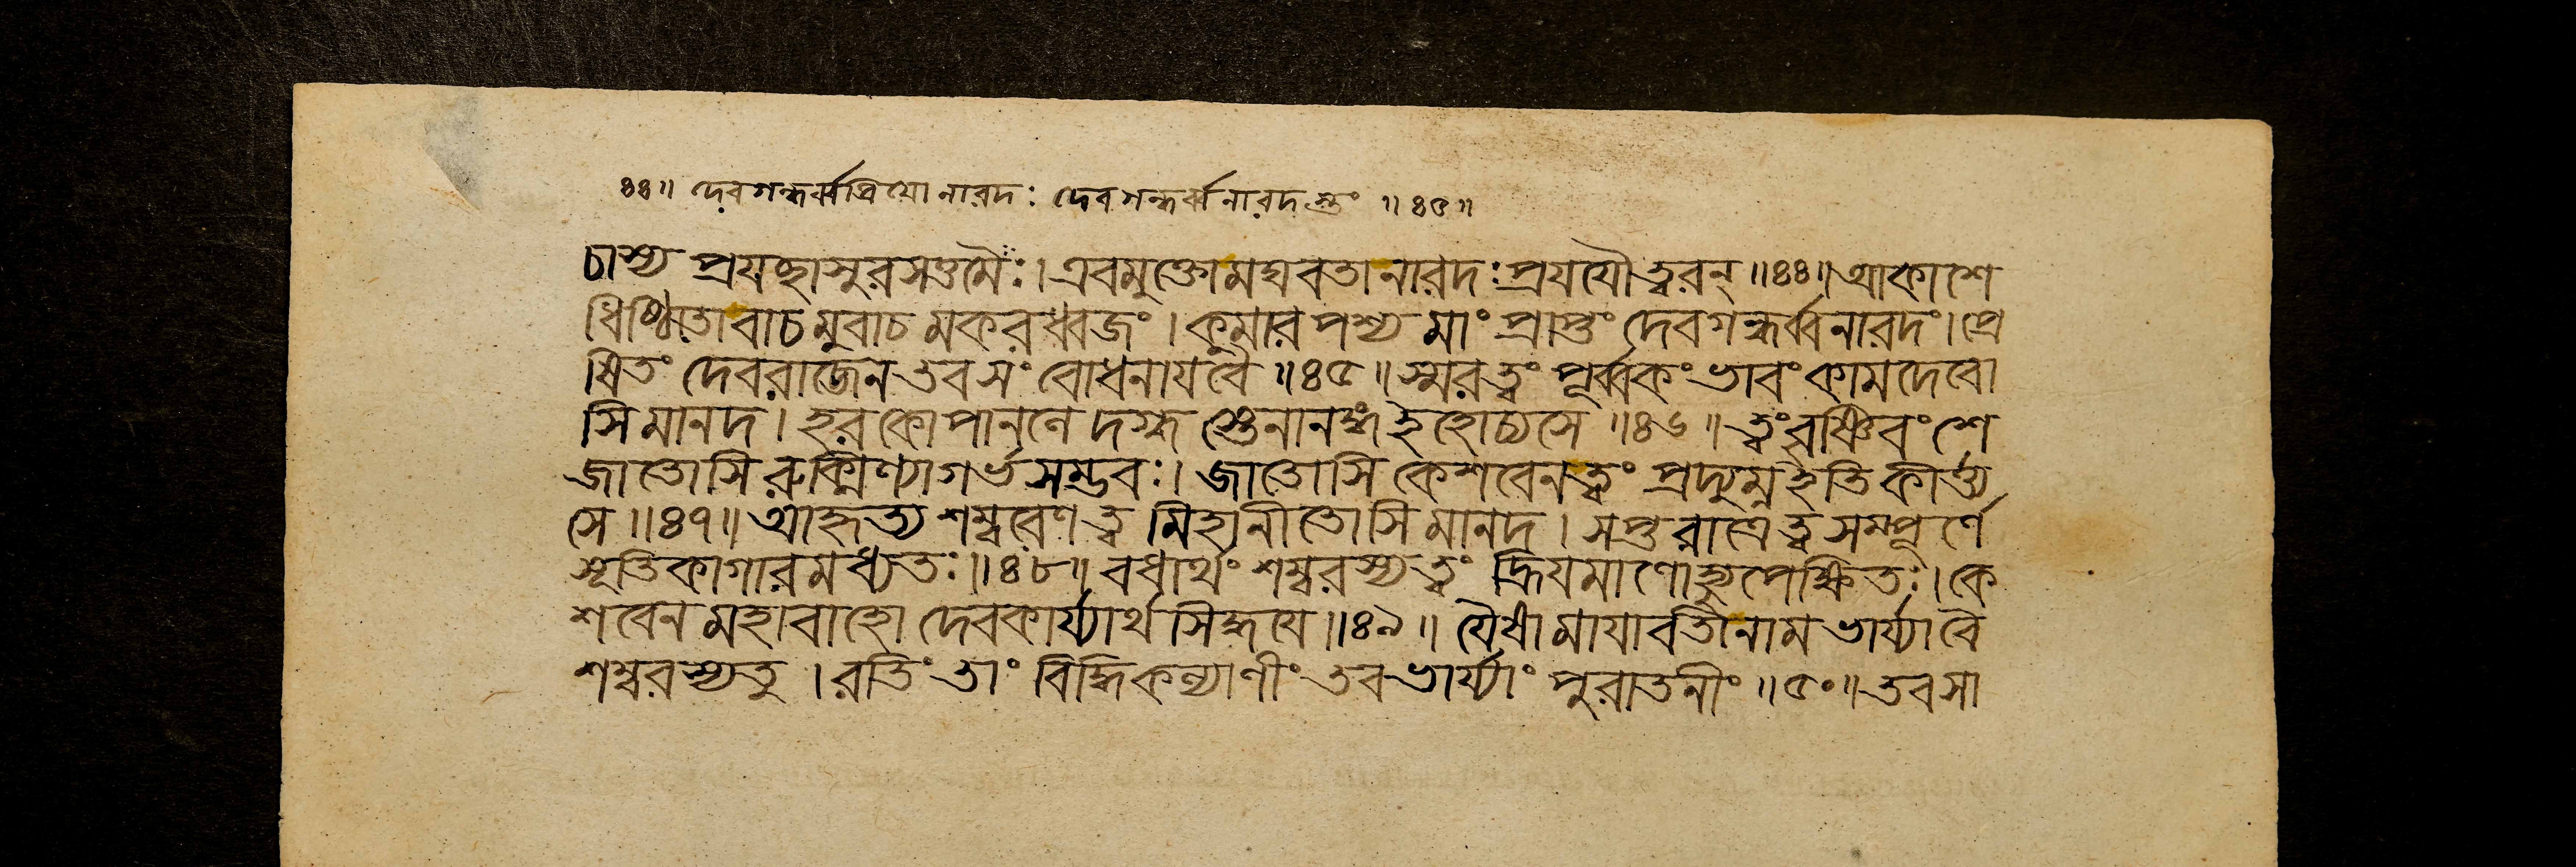 ৪৪॥ দেবগন্ধর্ব্বপ্রিয়ো নারদঃ দেবগন্ধর্ব্বনারদস্তং ॥৪৫॥
চাস্য প্রযচ্ছাসুরসত্তমৈঃ। এবমুক্তো মঘবতা নারদঃ প্রযযৌ ত্বরন্ ॥৪৪॥ আকাশে
ধিষ্ঠিতো বাচমুবাচ মকরধ্বজং । কুমার পশ্য মাং প্রাপ্তং দেবগন্ধর্ব্বনারদং। প্রে
ষিতং দেবরাজেন তব সংবোধনায বৈ ॥৪৫॥ স্মর ত্বং পূর্ব্বকং ভাবং কামদেবো
সি মানদ। হরকোপানলে দগ্ধ স্তেনানঙ্গ ইহোচ্যসে ॥৪৬॥ ত্বং বৃষ্ণিবংশে
জাতোসি রুক্মিণ্যা গর্ভসম্ভবঃ। জাতোসি কেশবেন ত্বং প্রদ্যুম্ন ইতি কীর্ত্ত্য
সে ॥৪৭॥ আহৃত্য শম্বরেণ ত্ব মিহানীতোসি মানদ । সপ্তরাত্রে ত্বসম্পূর্ণে
সূতিকাগারমধ্যতঃ ॥৪৮॥ বধার্থং শম্বরস্য ত্বং হ্রিযমাণো হ্যুপেক্ষিতঃ। কে
শবেন মহাবাহো দেবকার্য্যার্থসিদ্ধযে ॥৪৯॥ যৈষা মাযাবতী নাম ভার্য্যা বৈ
শম্বরস্য তু । রতিং তাং বিদ্ধি কল্যাণীং তব ভার্য্যাং পুরাতনীং ॥৫০॥ তব সা